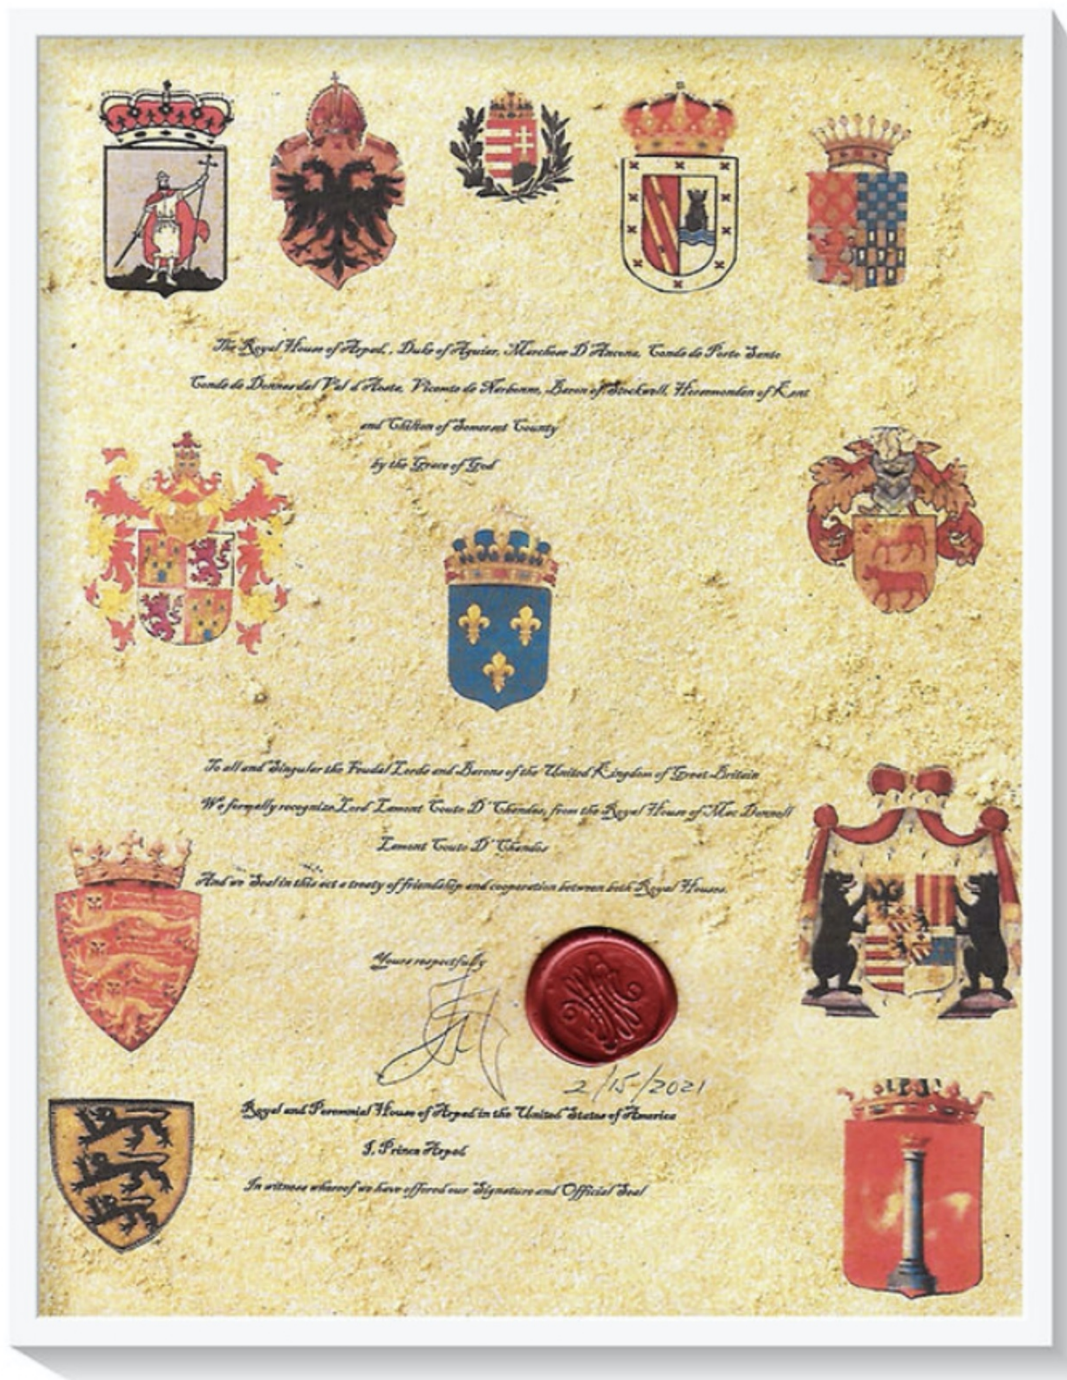 The Royal House of Arpad, , Duke of Aquier, Marchese D'Ancona, Conde de Porto Santo
Conde de Donnas dal Val d'Aosta, Viconte de Narbonne, Baron of Stockwell, Horsmonden of Kent
and Chilton of Somerset County
by the Grace of God
To all and Singular the Feudal Lords and Barons of the United Kingdom of Great Britain
We formally recognize Lord Lamont Couto D' Chandos, from the Royal House of Mac Donnell
Lamont Couto D' Chandos
And we Seal in this act a treaty of friendship and cooperation between both Royal Houses.
Yours respectfully
2/15/2021
Royal and Perennial House of Arpad in the United States of America
I, Prince Arpad
In witness whereof we have offered our Signature and Official Seal